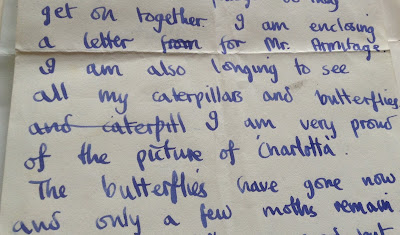 get on together I am enclosing
a letter from for Mr. Armitage.
I am also longing to see
all my caterpillars and butterflies
and caterpill I am very proud
of the picture of Charlotta.
The butterflies have gone now
and only a few moths remain